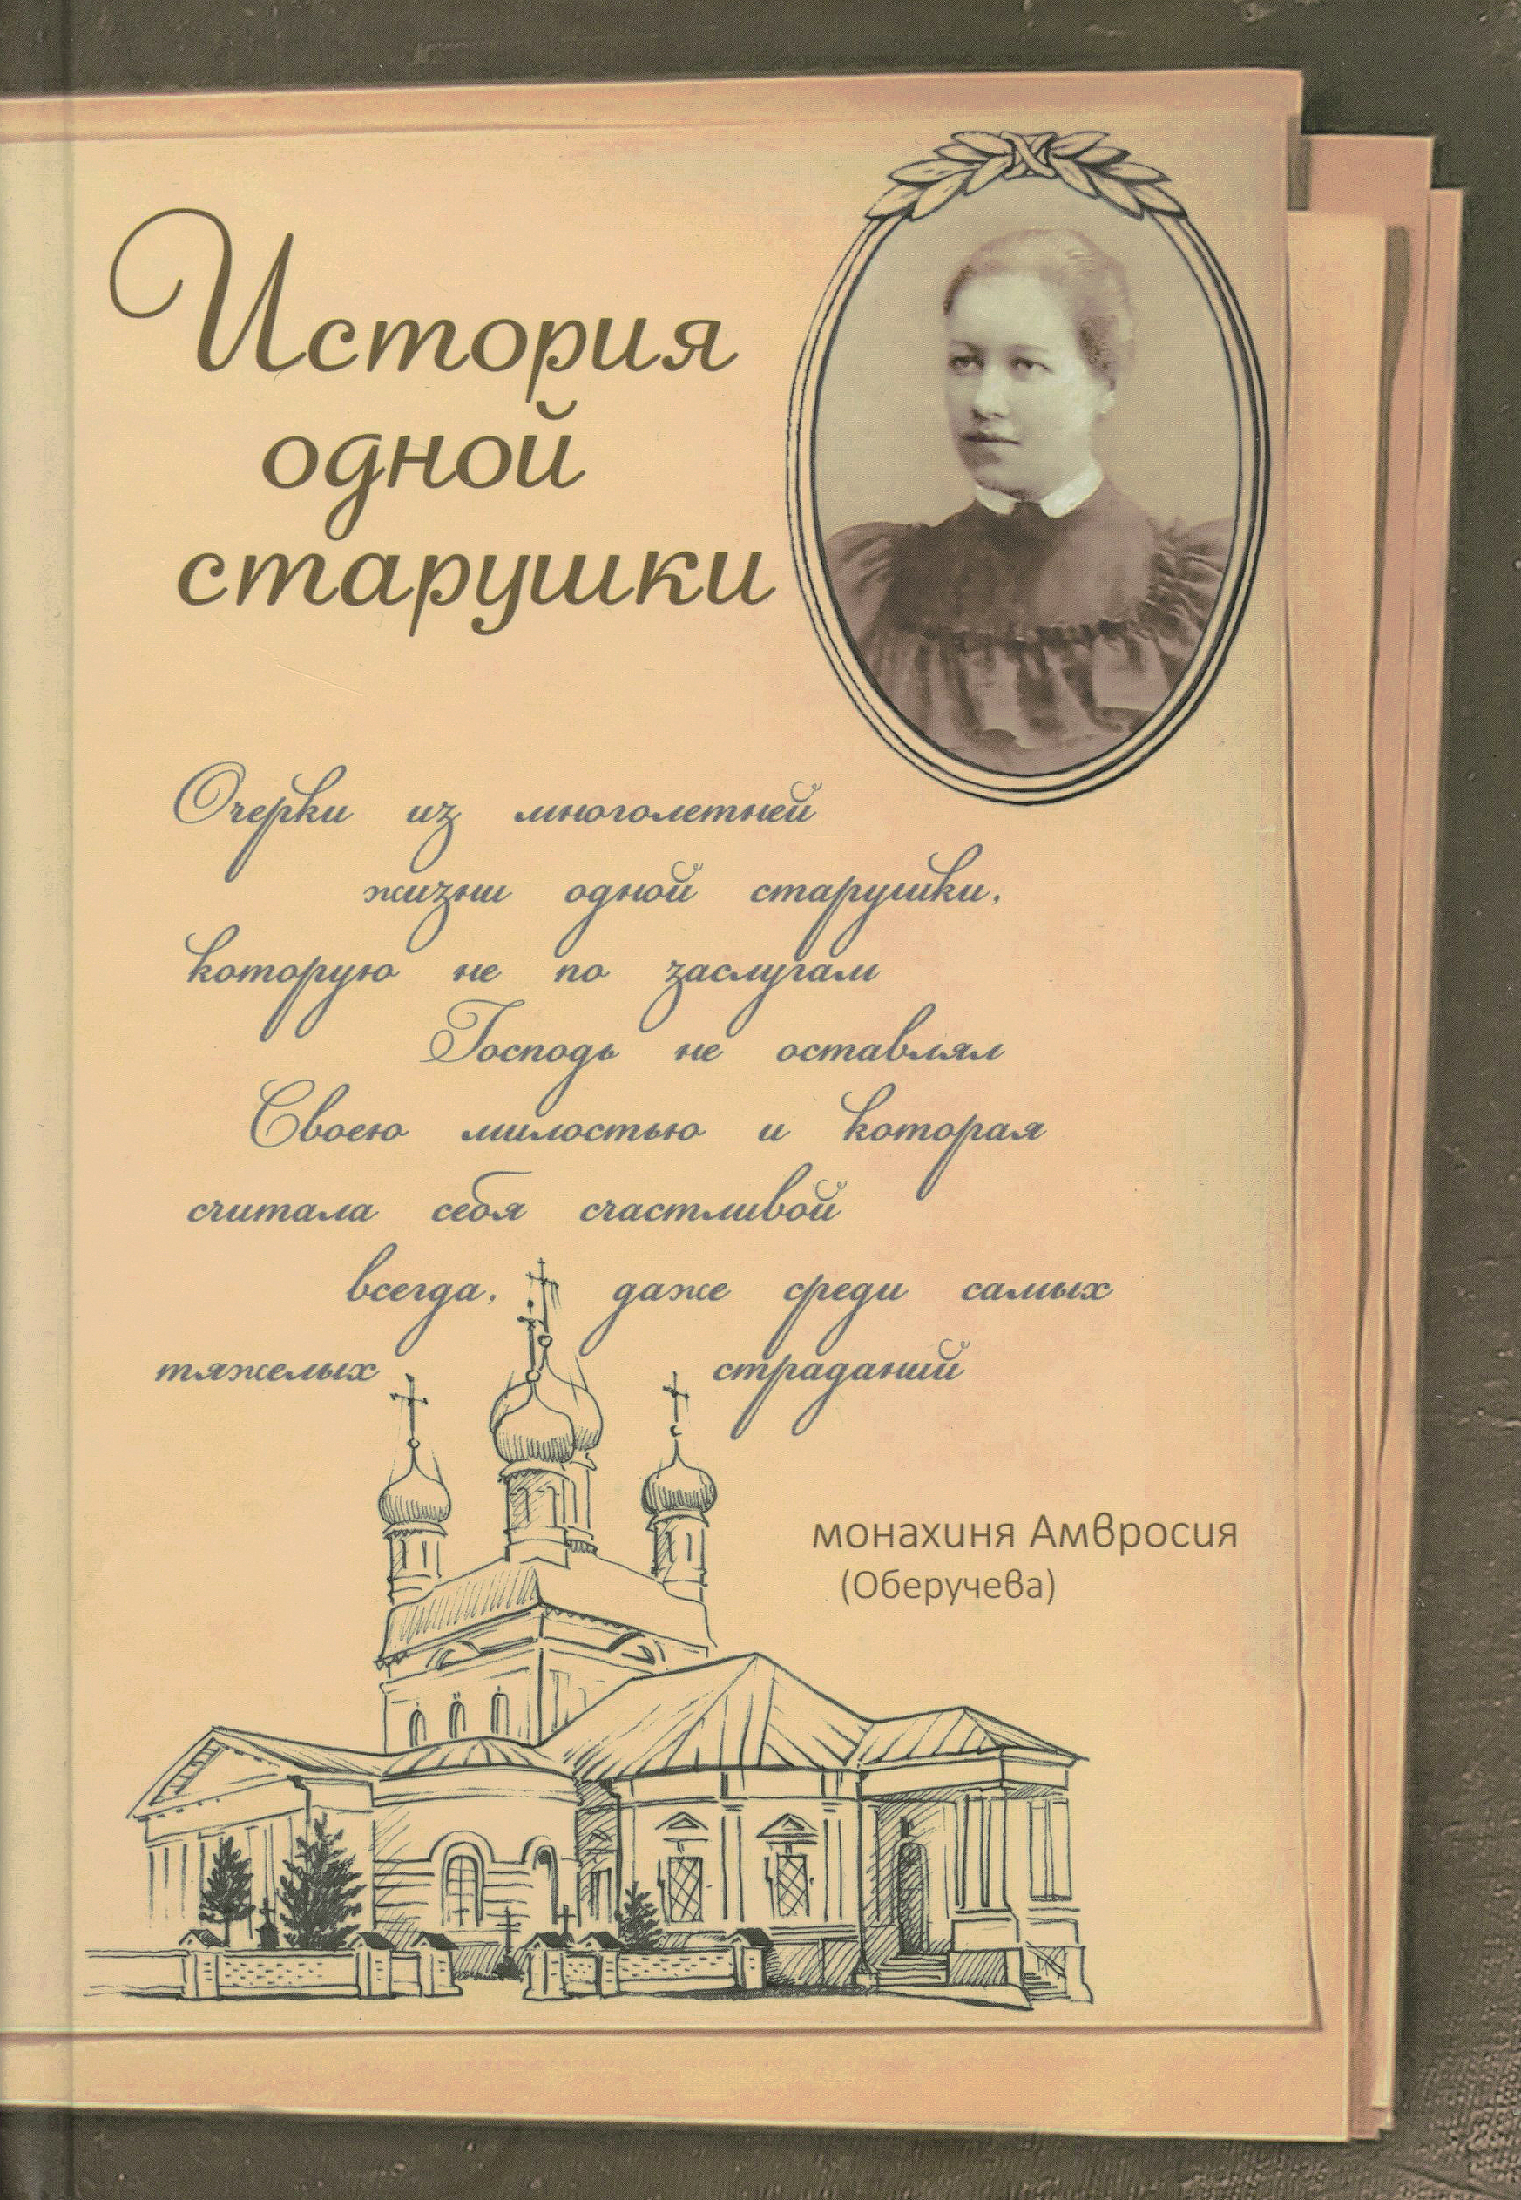 История
одной
старушки
Очерки из многолетней
жизни одной старушки,
которую не по заслугам
Господь не оставлял
Своею милостью и которая
считала себя счастливой
всегда, даже среди самых
тяжелых страданий
монахиня Амвросия
(Оберучева)